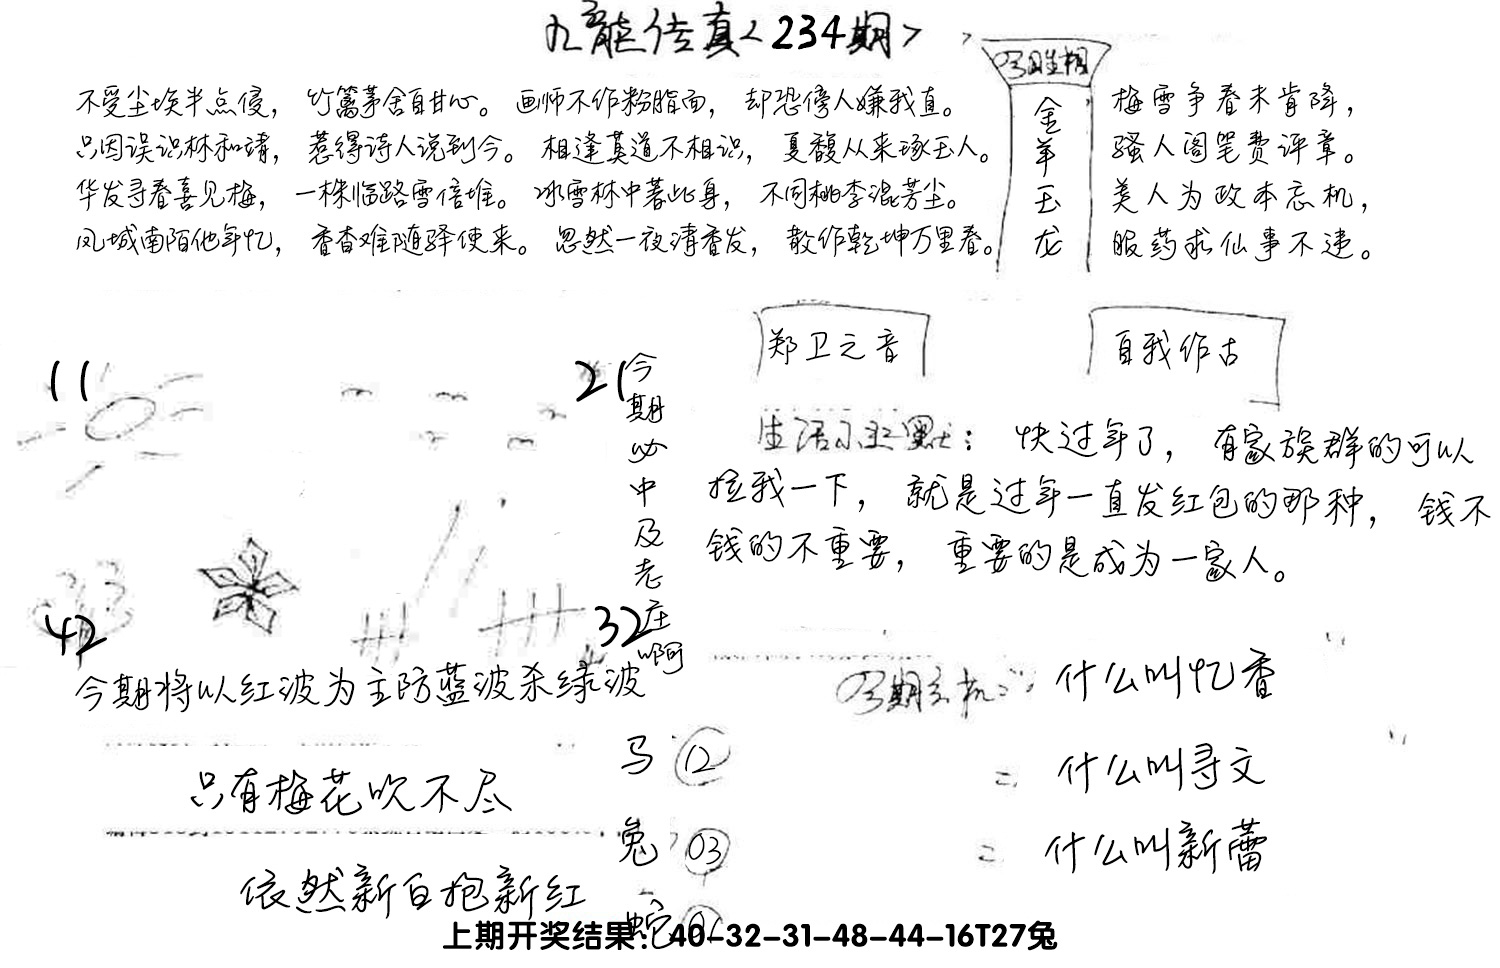 九龙传真<234期>
不受尘埃半点侵，竹篱茅舍自甘心。画师不作粉脂面，却恐傍人嫌我直。
只因误识林和靖，惹得诗人说到今。相逢莫道不相识，夏馥从来琢玉人。
华发寻春喜见梅，一株临路雪倍堆。冰雪林中著此身，不同桃李混芳尘。
凤城南陌他年忆，香杳难随驿使来。忽然一夜清香发，散作乾坤万里春。
金羊玉龙
梅雪争春未肯降，
骚人阁笔费评章。
美人为政本忘机，
服药求仙事不违。
郑卫之音
自我作古
11
21
42
32
今期必中及老庄啊
生活小幽默：快过年了，有家族群的可以
拉我一下，就是过年一直发红包的那种，钱不
钱的不重要，重要的是成为一家人。
今期将以红波为主防蓝波杀绿波
什么叫忆香
什么叫寻文
什么叫新蕾
只有梅花吹不尽
依然新白抱新红
马 12
兔 03
蛇
上期开奖结果：40-32-31-48-44-16T27兔